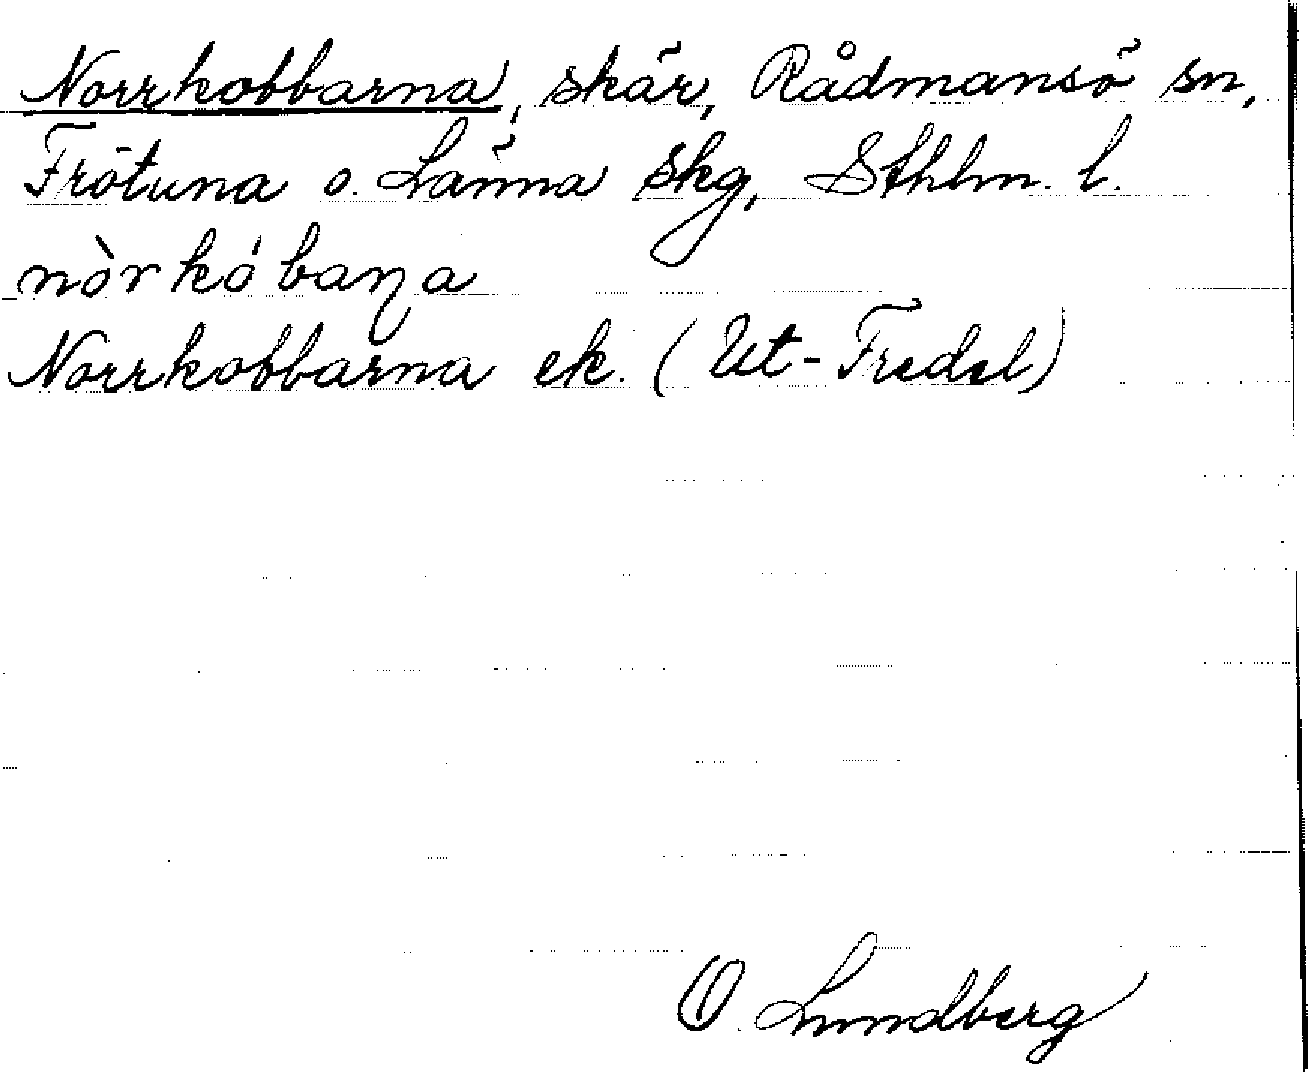 Norrkobbarna, skär, Rådmansö sn,
Frötuna o. Länna skg, Sthlm. l.
nòrkóbaɳa
Norrkobbarna ek. (Ut-Fredel)
O. Lundberg